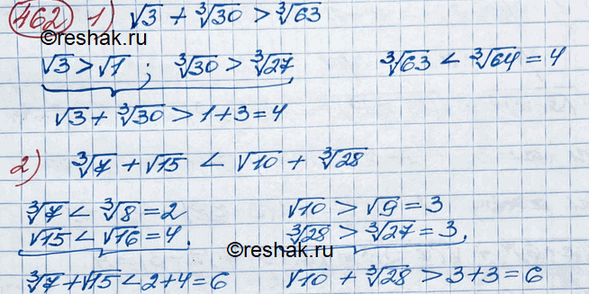 462 1) √3 + ∛30 > ∛63
©reshak.ru
√3 > √1 ; ∛30 > ∛27 ∛63 < ∛64 = 4
√3 + ∛30 > 1+3 = 4
2) ∛7 + √15 < √10 + ∛28
∛7 < ∛8 = 2 √10 > √9 = 3
√15 < √16 = 4, ∛28 > ∛27 = 3,
©reshak.ru
∛7 + √15 < 2+4 = 6 √10 + ∛28 > 3+3 = 6